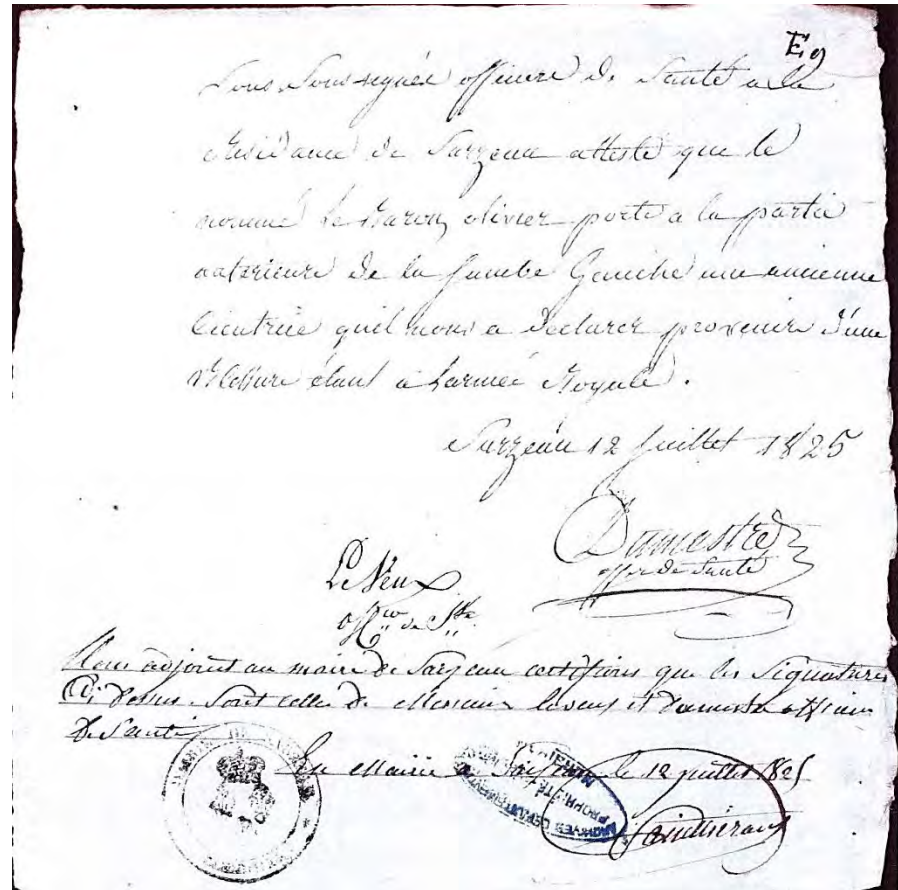 E 9
Nous Soussignés officiers de Santé a la
Résidance de Sarzeau atteste que le
nommé Le olivier porte a la partie
anterieure de la Jambe Gauche une ancienne
Cicatrice quil nous a declarer provenire d'une
Blessure étant à Larmée Royale.
Sarzeau 12 Juillet 1825
Damestre
offer de Santé
Le Veux
de Sté
Nous adjoint au maire de Sarzeau certifions que les Signatures
Ci dessus Sont celles de Messieurs leveux et damestre officiers
De Santé
En Mairie a Sarzeau le 12 juillet 1825
ARCHIVES DEPARTEMENTALES
PROPRIÉTÉ